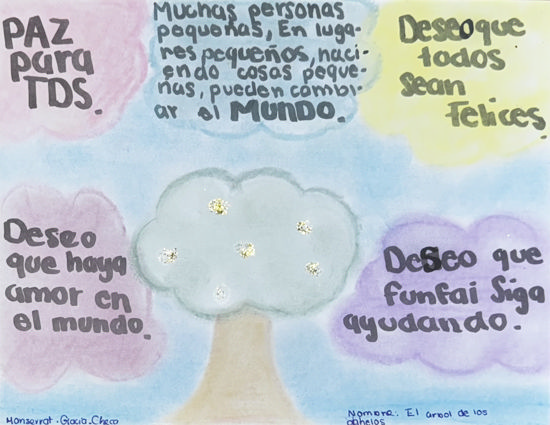 PAZ
para
TDS.
Muchas personas
pequeñas, En luga-
res pequeños, haci-
endo cosas peque-
ñas, pueden cambi-
ar el MUNDO.
Deseo que
todos
sean
Felices.
Deseo
que haya
amor en
el mundo.
Deseo que
funfai Siga
ayudando.
Monserrat.Gracia.Checo
Nombre: El arbol de los
anhelos